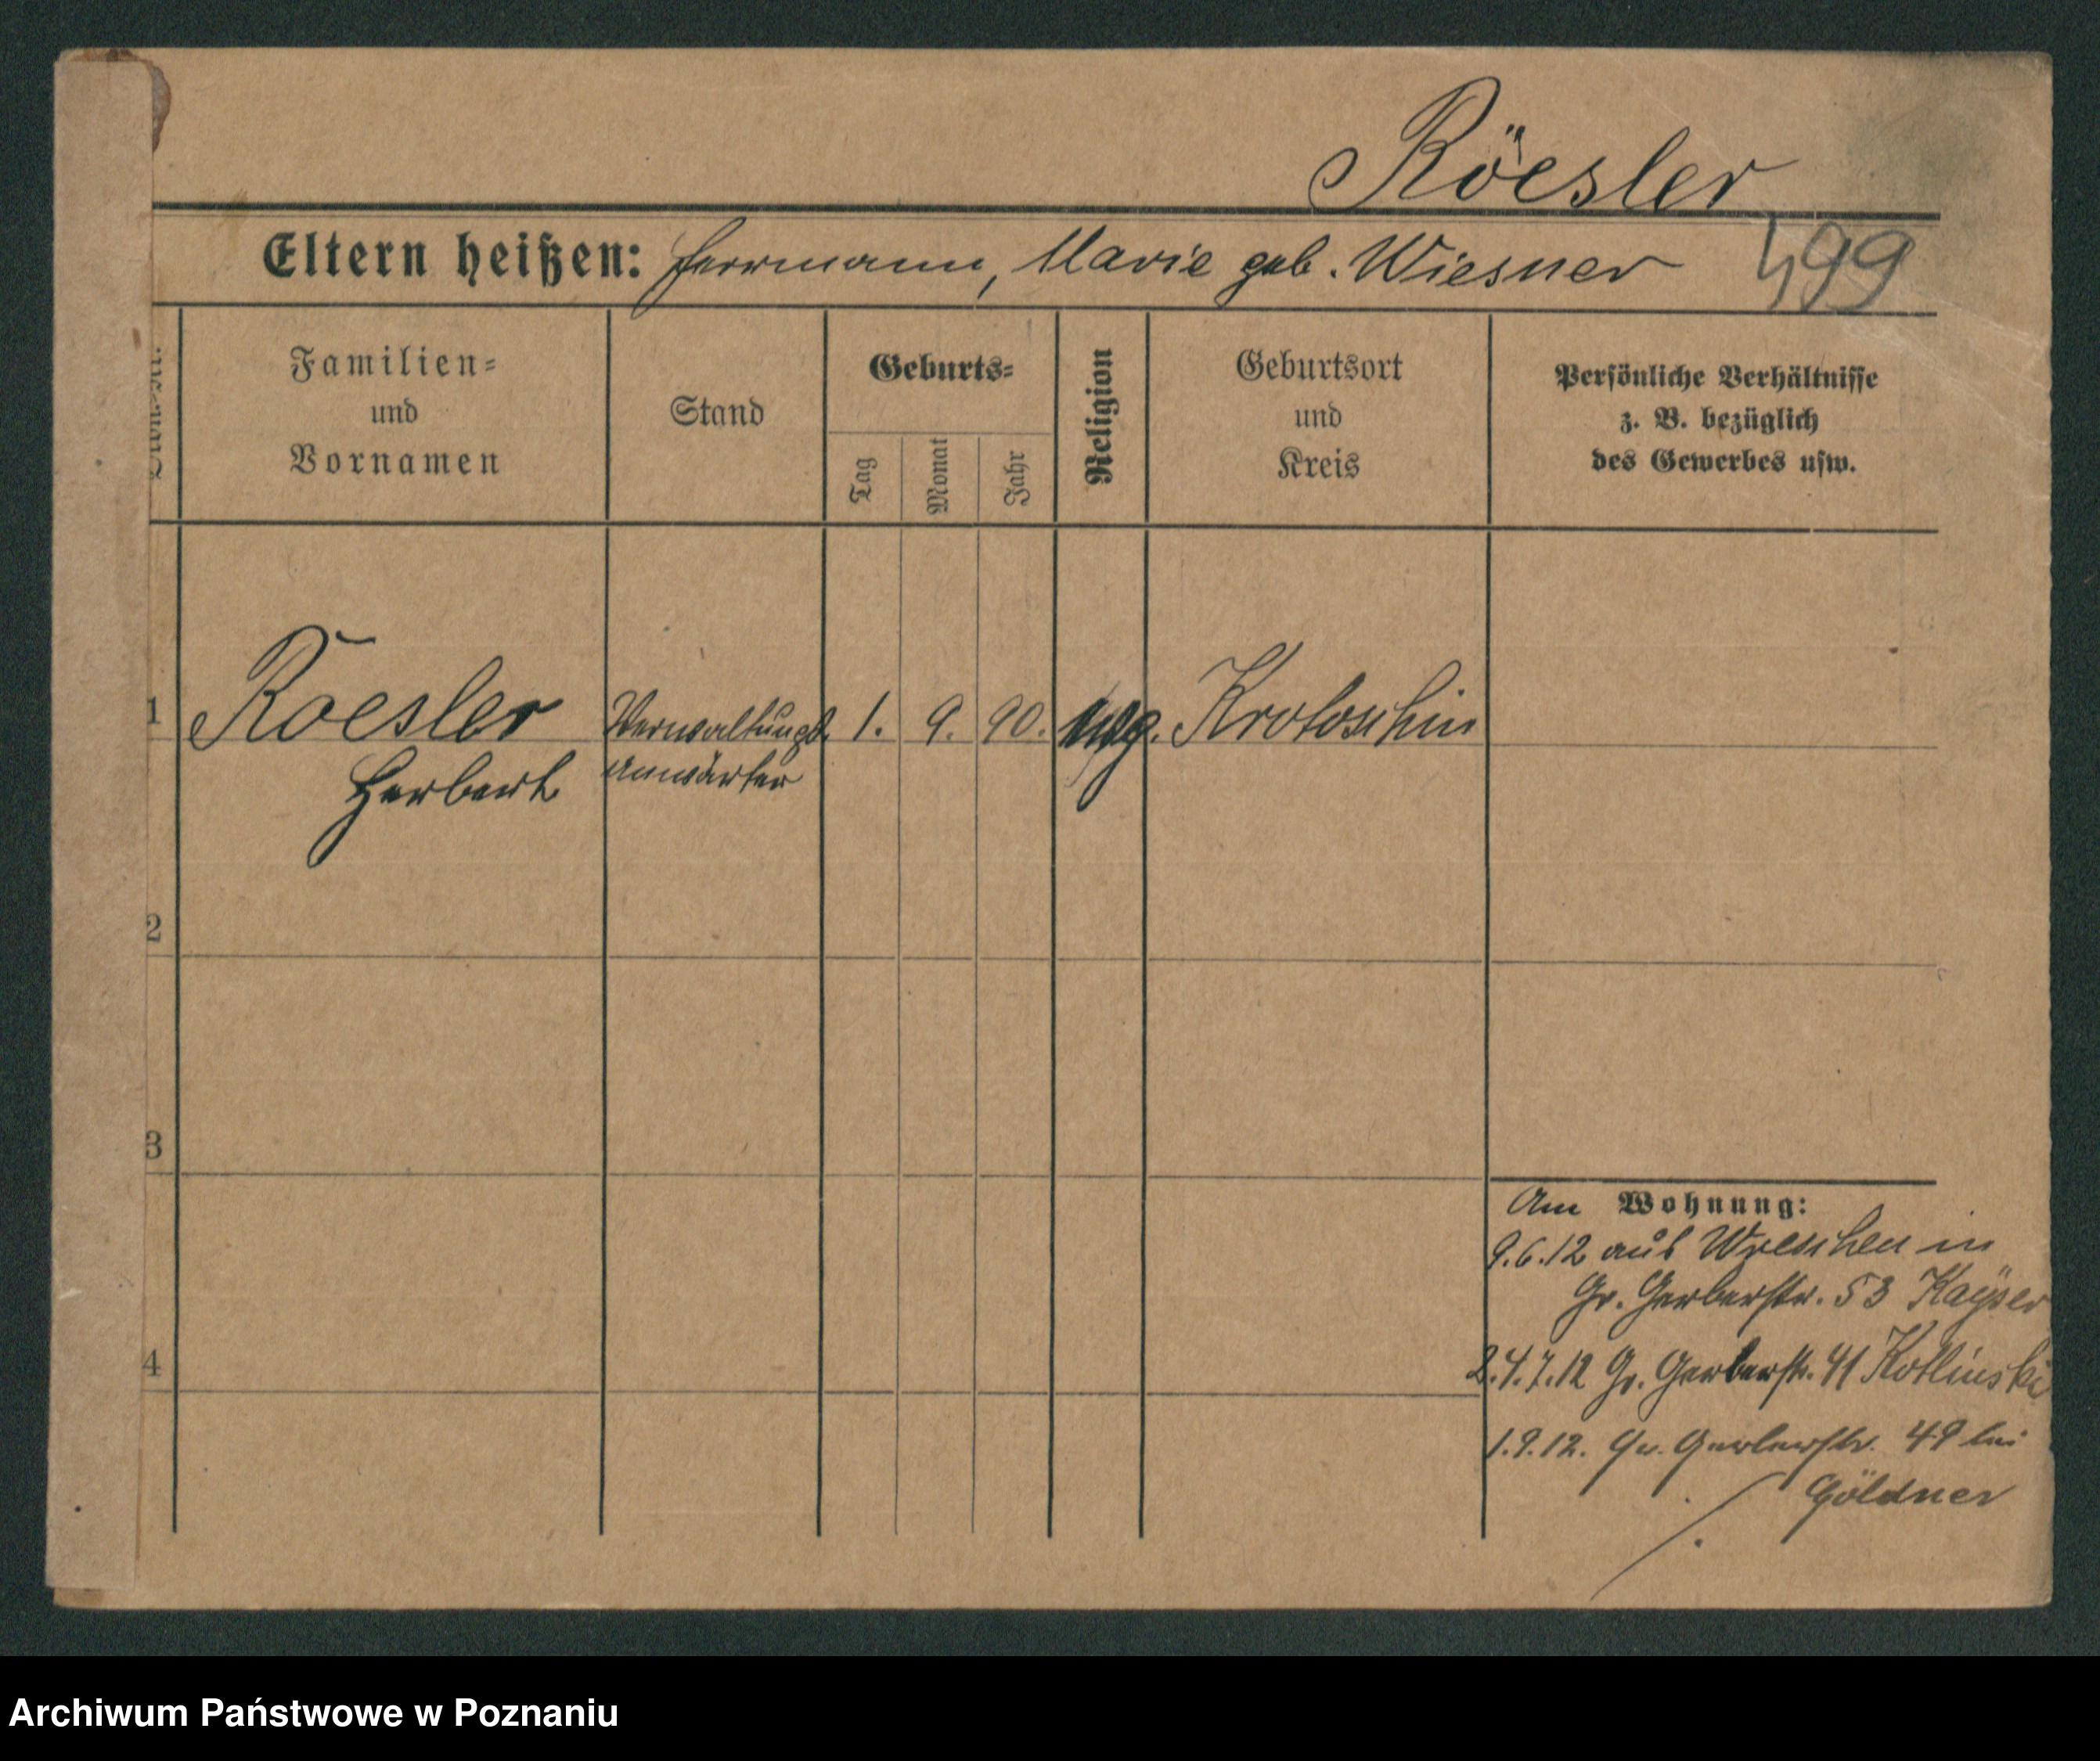 Röesler
Eltern heißen: Herrmann, Marie geb. Wiesner 499
Familien=
und
Vornamen
Stand
Geburts=
Tag
Monat
Jahr
Religion
Geburtsort
und
Kreis
Persönliche Verhältnisse
z. B. bezüglich
des Gewerbes usw.
1 Roesler Verwaltungs 1. 9. 90. Krotoschin
Herbert Anwärter
2
3
4
Am Wohnung:
9.6.12 aus Wreschen in
Gr. Gerberstr. 53 Kayser
24.7.12 Gr. Gerberstr. 41 Kotlinski
1.9.12. Gr. Gerberstr. 49 bei
Göldner
Archiwum Państwowe w Poznaniu